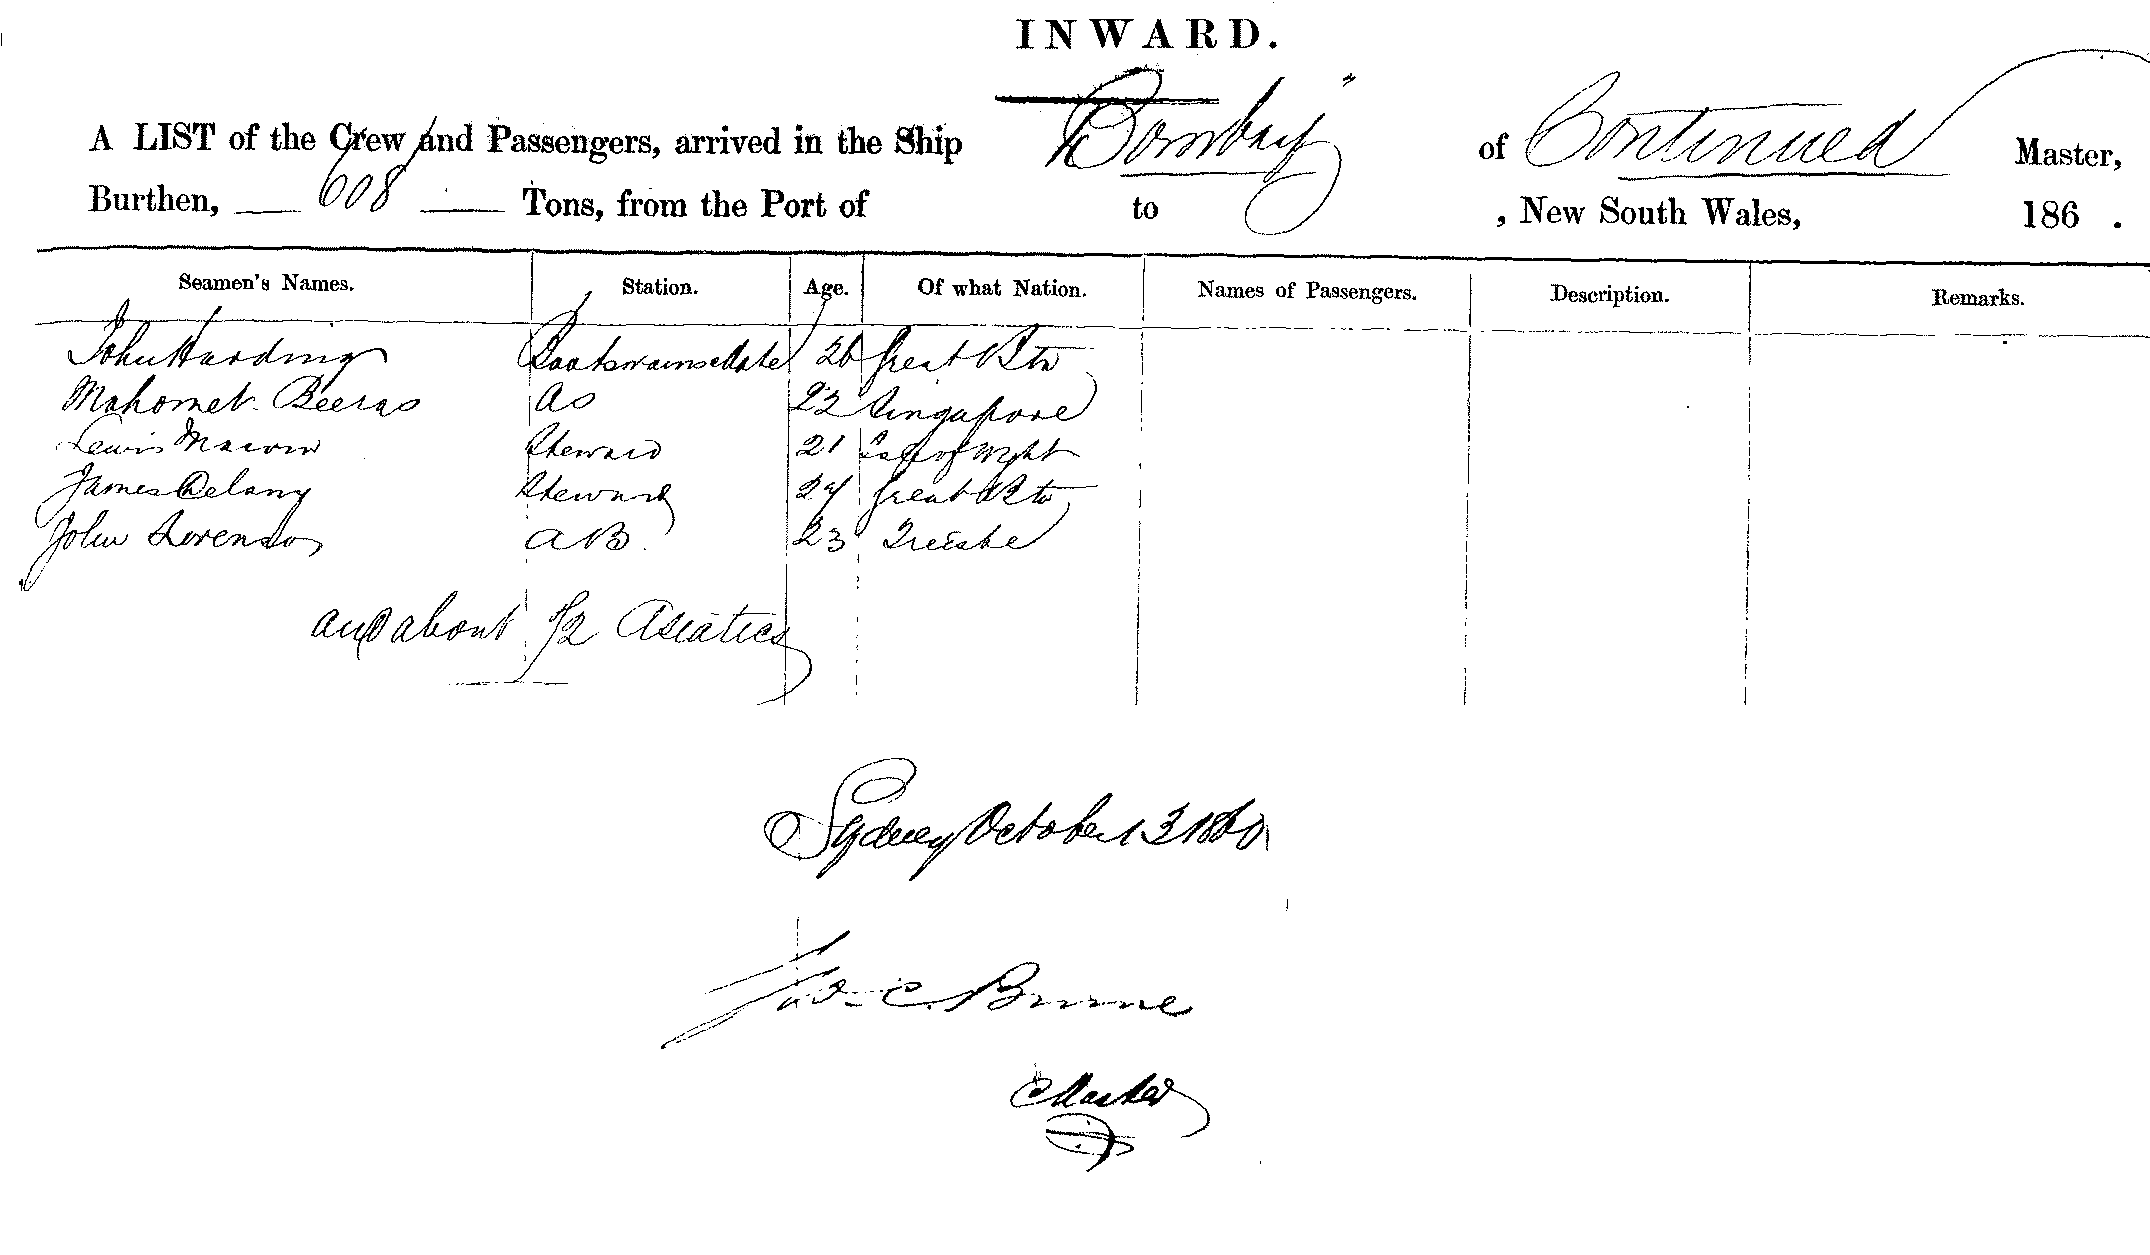 INWARD.
A LIST of the Crew and Passengers, arrived in the Ship Bombay" of Continued Master,
Burthen, 608 Tons, from the Port of to , New South Wales, 186 .
Seamen's Names. Station. Age. Of what Nation. Names of Passengers. Description. Remarks.
John Harding Boatswains Mate 26 Great Btn
Mahomet 22 Singapore
Lewis Steward 21 Isle of Wght
James Delany Steward 24 Great Btn
John Lorenzo AB 23 Trieste
and about Asiatics
Sydney October 13 1860
C. Burne
Master